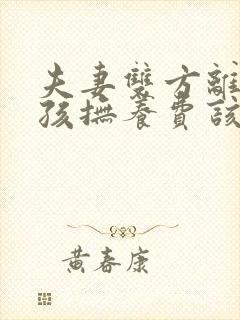 夫妻雙方離
孩撫養費該
黃春康